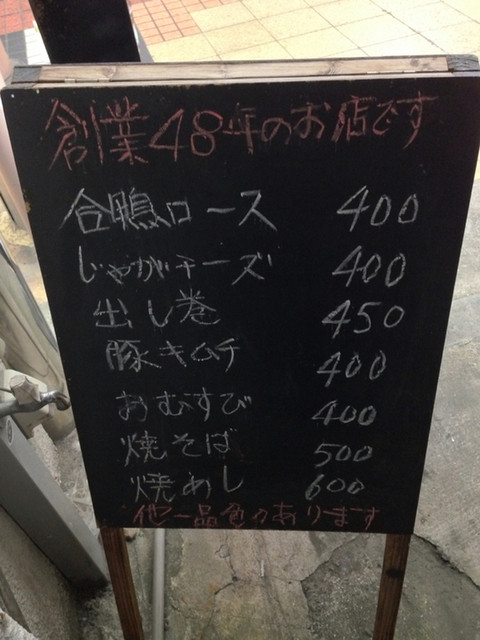 創業48年のお店です
合鴨ロース 400
じゃがチーズ 400
出し巻 450
豚キムチ 400
おむすび 400
焼そば 500
焼めし 600
他一品色々あります